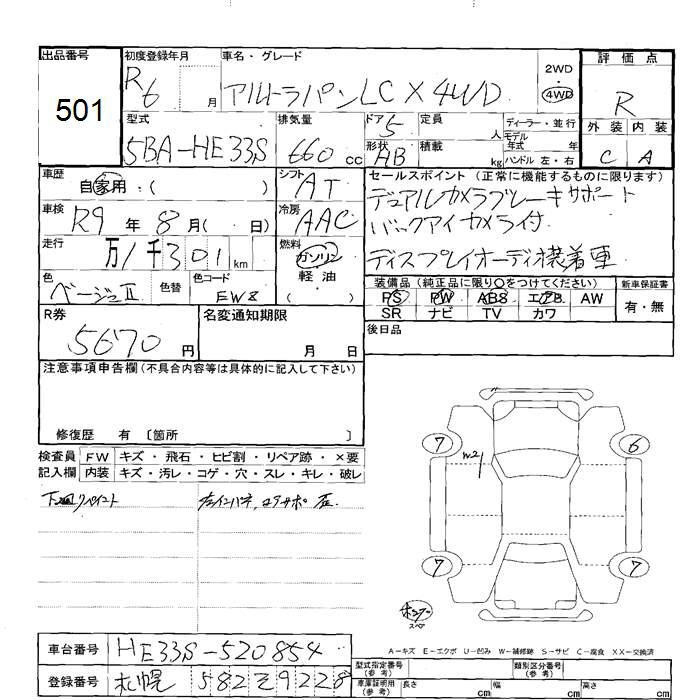 出品番号 初度登録年月 車名・グレード 評価点
501 R6 月 アルトラパンLC X 4WD 2WD 4WD R
型式 排気量 ドア 5 定員 人 ディーラー・並行 外装 内装
5BA-HE33S 660 cc 形状 HB 積載 kg モデル年式 年 ハンドル 左・右 C A
車歴 自家用:( ) シフト AT セールスポイント (正常に機能するものに限ります)
車検 R9 年 8 月( 日) 冷房 AAC デュアルカメラブレーキサポート
バックアイカメラ付
走行 万1千301 km 燃料 ガソリン 軽油 ( ) ディスプレイオーディオ装着車
色 ベージュII 色替 色コード EW8 装備品 (純正品に限り○をつけてください) 新車保証書
PS PW ABS エアB AW 有・無
R券 5670 円 名変通知期限 月 日 SR ナビ TV カワ
後日品
注意事項申告欄 (不具合内容等は具体的に記入して下さい)
修復歴 有 〔箇所 〕
検査員 FW キズ・飛石・ヒビ割・リペア跡・×要
記入欄 内装 キズ・汚レ・コゲ・穴・スレ・キレ・破レ
7 6
7 7
A-キズ E-エクボ U-凹み W-補修跡 S-サビ C-腐食 XX-交換済
車台番号 HE33S-520854 型式指定番号 (参考) 類別区分番号 (参考)
登録番号 札幌 582 Z 9228 車庫証明用 (参考) 長さ cm 幅 cm 高さ cm